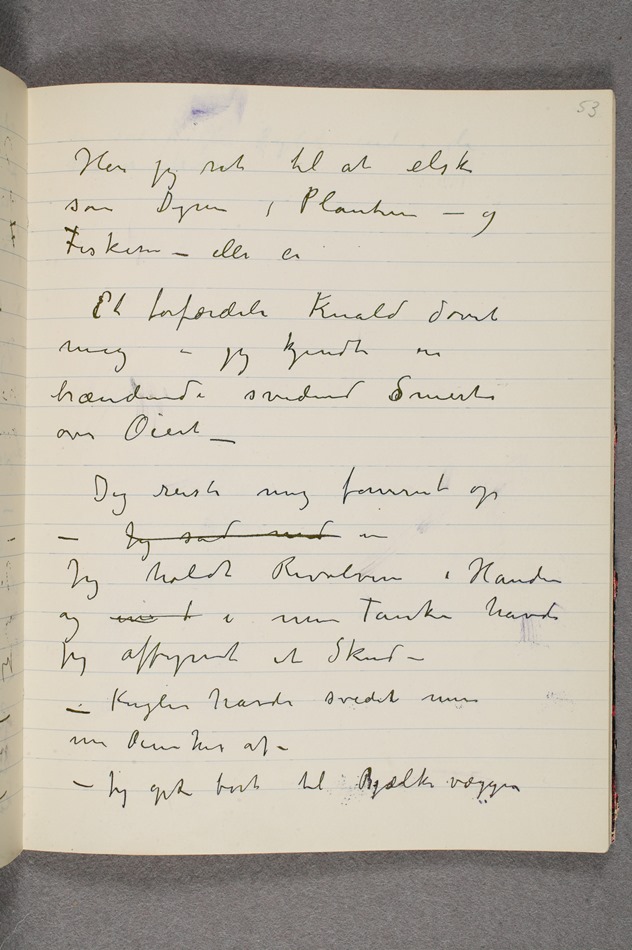 53
Har jeg ret til at elske
som Dyrene, Planterne – og
Fiskene – eller ei
Et forfærdeli Knald døvet
mig – jeg kjendte en
brændende sviende Smerte
over Øiet –
Jeg reiste mig forvirret op
– Jeg sad med en
Jeg holdt Revolveren i Handen
og i min Tanke havde
jeg affyret et Skud –
– Kuglen havde svedet mine
af –
– Jeg gik bort til Bjælkevæggen